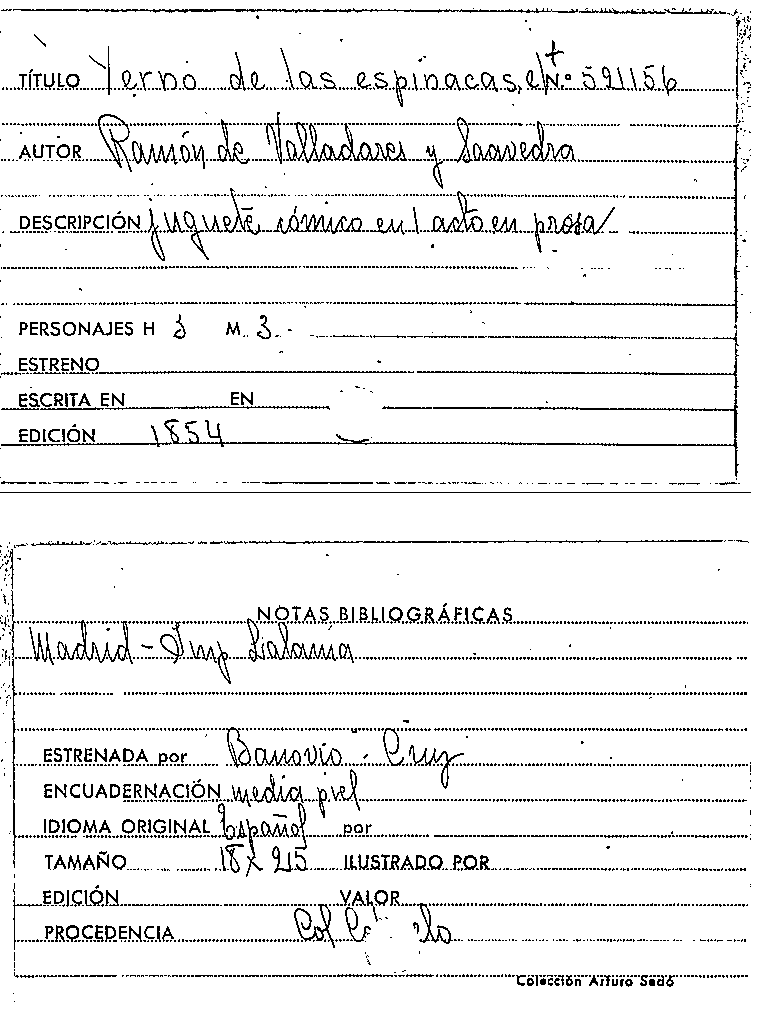 TÍTULO Yerno de las espinacas, el Nº 521156
AUTOR Ramón de Valladares y Saavedra
DESCRIPCIÓN juguete cómico en 1 acto en prosa
PERSONAJES H 3 M 3.-
ESTRENO
ESCRITA EN EN
EDICIÓN 1854
NOTAS BIBLIOGRÁFICAS
Madrid - Imp Lalama
ESTRENADA por Banovio - Cruz
ENCUADERNACIÓN media piel
IDIOMA ORIGINAL Español por
TAMAÑO 18 x 215 ILUSTRADO POR
EDICIÓN VALOR
PROCEDENCIA Col
Colección Arturo Sedó